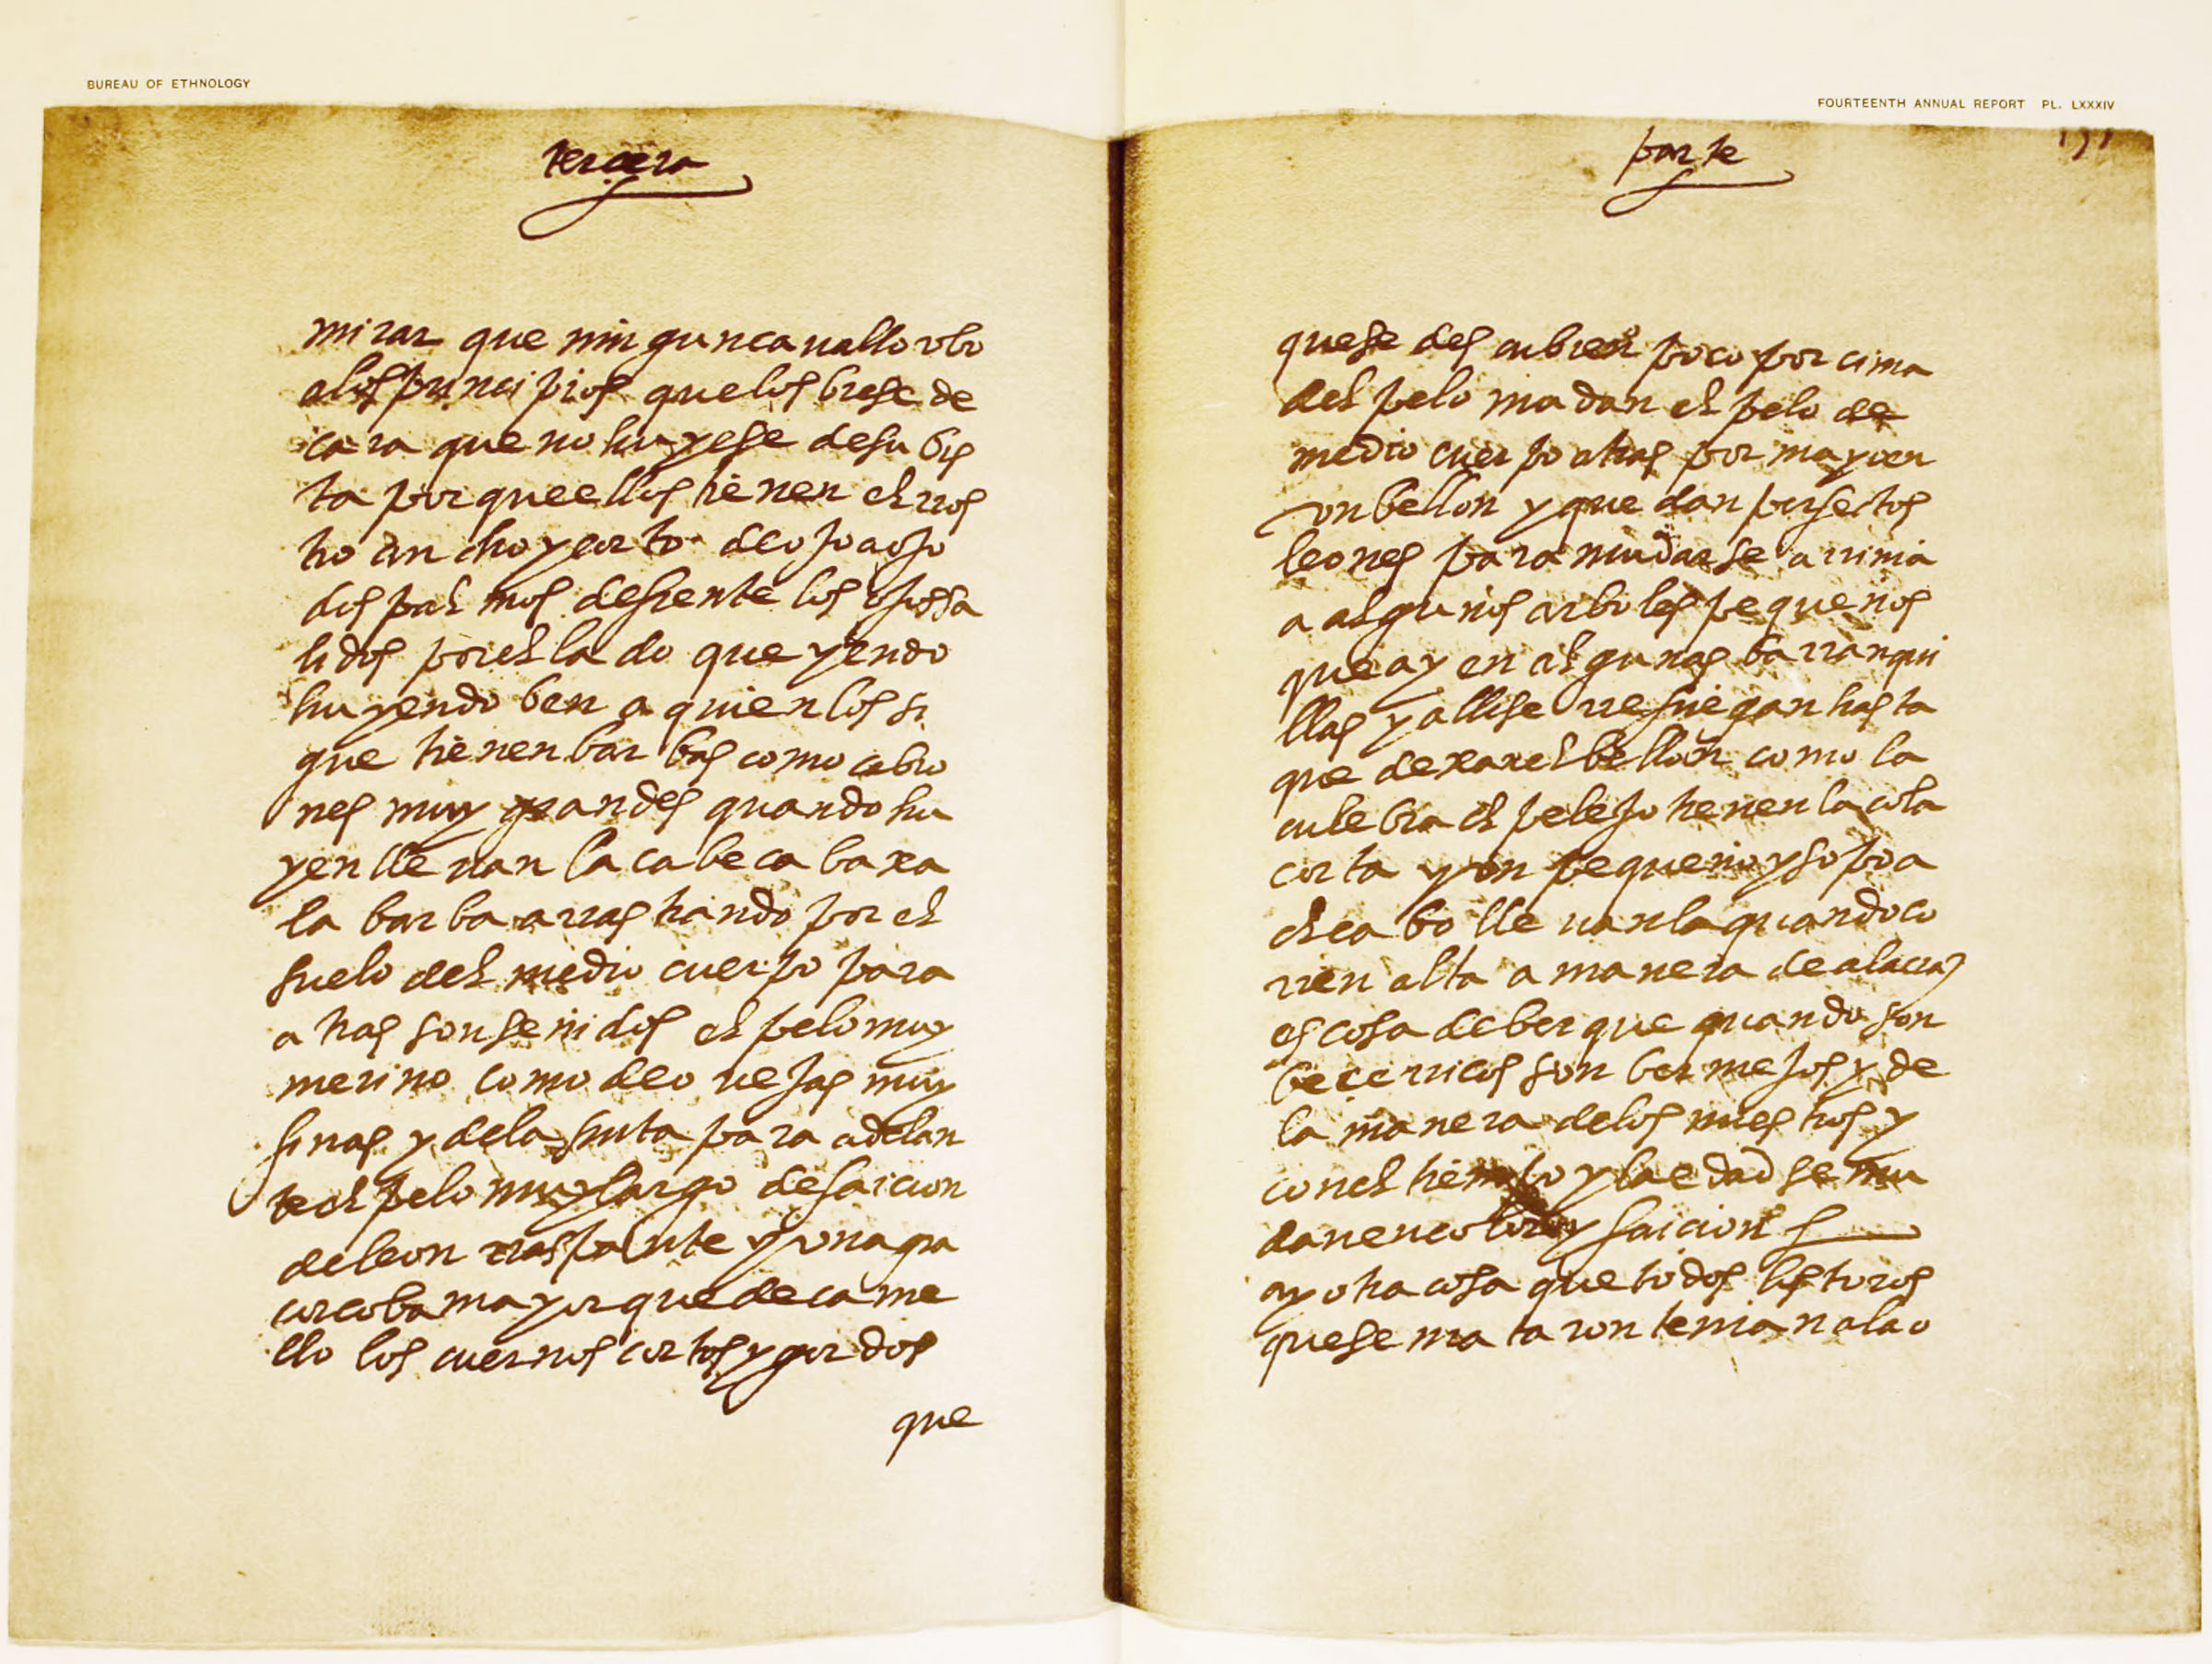 BUREAU OF ETHNOLOGY
FOURTEENTH ANNUAL REPORT PL. LXXXIV
tercera
mirar que ningun cauallo vbo
a los principios que los biese de
cara que no huyese de su bis
ta porque ellos tienen el rros
tro ancho y corto de ojo a ojo
dos palmos de frente los ojos sa
lidos por el lado que yendo
huyendo ben a quien los si
gue tienen barbas como cabro
nes muy grandes quando hu
yen lleuan la cabeca baxa
la barba arrastrando por el
suelo del medio cuerpo para
atras son señidos el pelo muy
merino como de ouejas muy
finas y de la sinta para adelan
te el pelo muy largo de faicion
de leon raspante y vna gra
corcoba mayor que de came
llo los cuernos cortos y gordos
que
parte
que se descubren poco por cima
del pelo mudan el pelo de
medio cuerpo atras por mayo en
vn bellon y quedan perfectos
leones para mudarse arrima
a algunos arboles pequeños
que ay en algunas barranqui
llas y alli se rrefriegan hasta
que dexan el bellon como la
culebra el pelejo tienen la cola
corta y vn pequeño ysopo a
el cabo lleuanla quando co
rren alta a manera de alacran
es cosa de ber que quando son
becerricos son bermejos y de
la manera de los nuestros y
con el tiempo y la edad se mu
dan en color y faicion
ay otra cosa que todos los toros
que se mataron tenian a la o